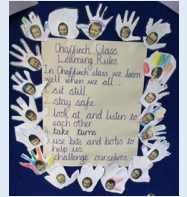 Chaffinch Class
Learning Rules
In Chaffinch class we learn
well when we all...
sit still
stay safe
look at and listen to
each other
take turns
use bits and bobs to
help us
challenge ourselves